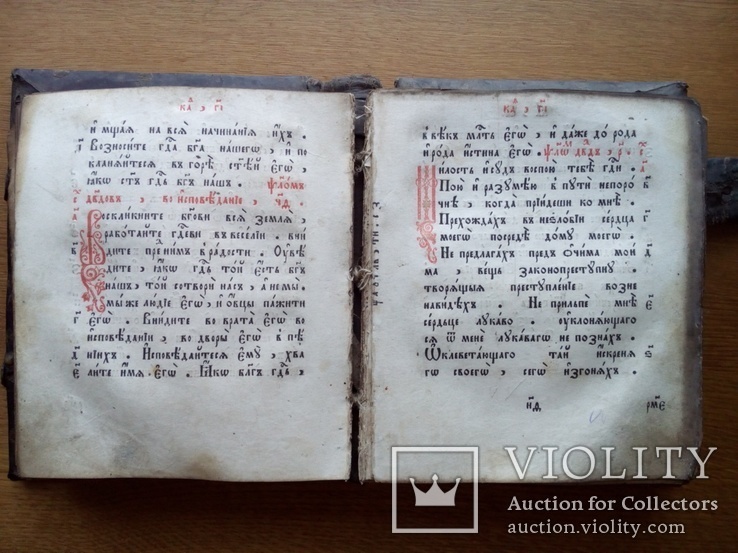 ка҇ , г҃і
и мщая на вся начинанія ихъ .
Возносите гд҇а бг҃а нашегѡ , и по
кланяйтеся въ горѣ ст҃ѣй егѡ ,
ꙗкѡ ст҃ъ гд҇ь бг҃ъ нашъ . ѱало́мъ
дв҃довъ , во исповѣданїе , ч҃ѳ .
Воскликните бг҃ови вся земля ,
работайте гд҇еви въ веселіи . вни
дите пре́ нимъ в радости . Ѹвѣ
дите , ꙗкѡ гд҇ь той есть бг҃ъ
нашъ , той сотвори насъ , а не мы
мы же людіе егѡ , и ѻвцы пажити
егѡ . Внидите во врата егѡ во
исповѣданіи , во дворы егѡ в пѣ
нїихъ . Исповѣдайтеся емꙋ , хва
лите имя егѡ . Ꙗкѡ бл҃гъ гд҇ь ,
ка҇ , г҃і
в вѣкъ мл҇ть егѡ , и даже до рода
и рода истина егѡ . ѱало́ дв҃дъ , р҃
Милость и сꙋдъ воспою тебѣ гд҇и .
Пою и разꙋмѣю в пꙋти непоро
чнѣ , когда прїидеши ко мнѣ .
Прехождахъ в незлобїи сердца
моегѡ посредѣ домꙋ моегѡ .
Не предлагахъ пред̾ ѻчима мои
ма , вещь законопрестꙋпнꙋ .
творящыя престꙋпленїе возне
навидѣхъ . Не прильпе мнѣ
сердце лꙋкаво . ꙋклоняющаго
ся ѿ мене лꙋкавагѡ не познахъ .
Ѡклеветающаго тай искрення
гѡ своегѡ , сего изгоняхъ .
н҃д рм҃е
VIOLITY
Auction for Collectors
auction.violity.com